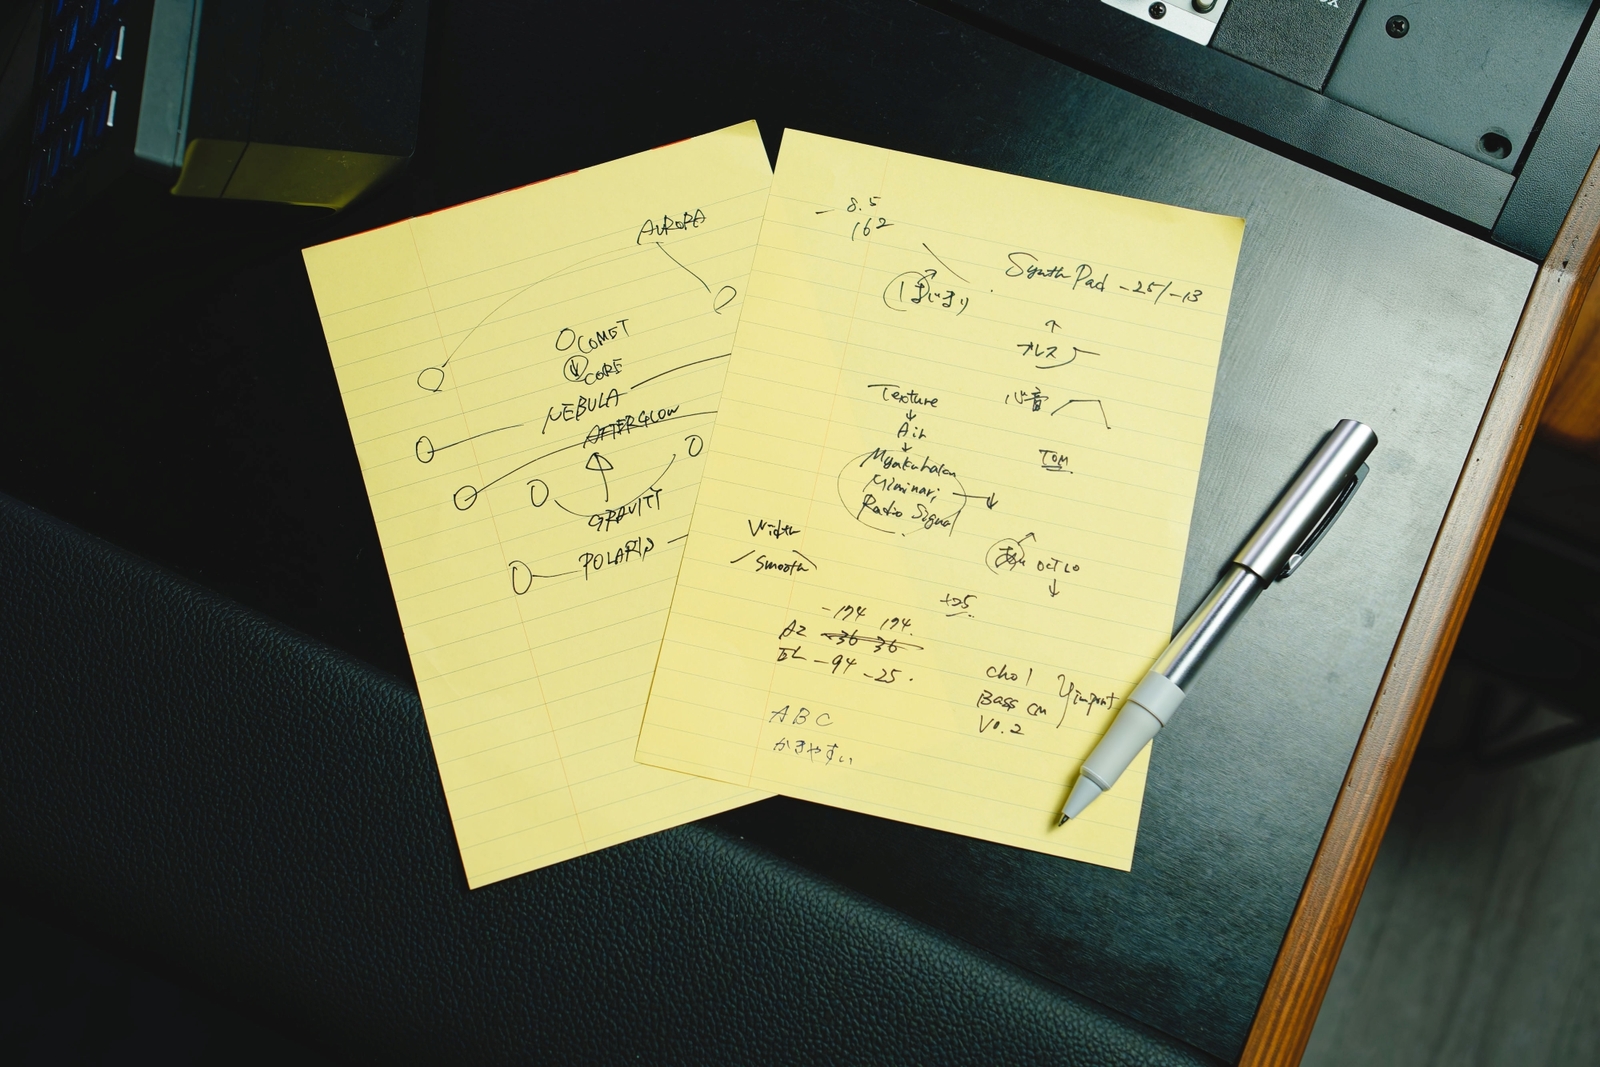 AURORA
COMET
CORE
NEBULA
AFTERGLOW
GRAVITY
POLARIS
8.5
162
はじまり
Synth Pad -25/-13
ブレス
Texture
心音
Air
Myakuhaku
TOM
Miminari
Radio Signal
Width
Smooth
OCT LO
+25
-174 174
AZ -36 36
EL -94 -25
cho 1
Bass cm
import
V0.2
ABC
かきやすい